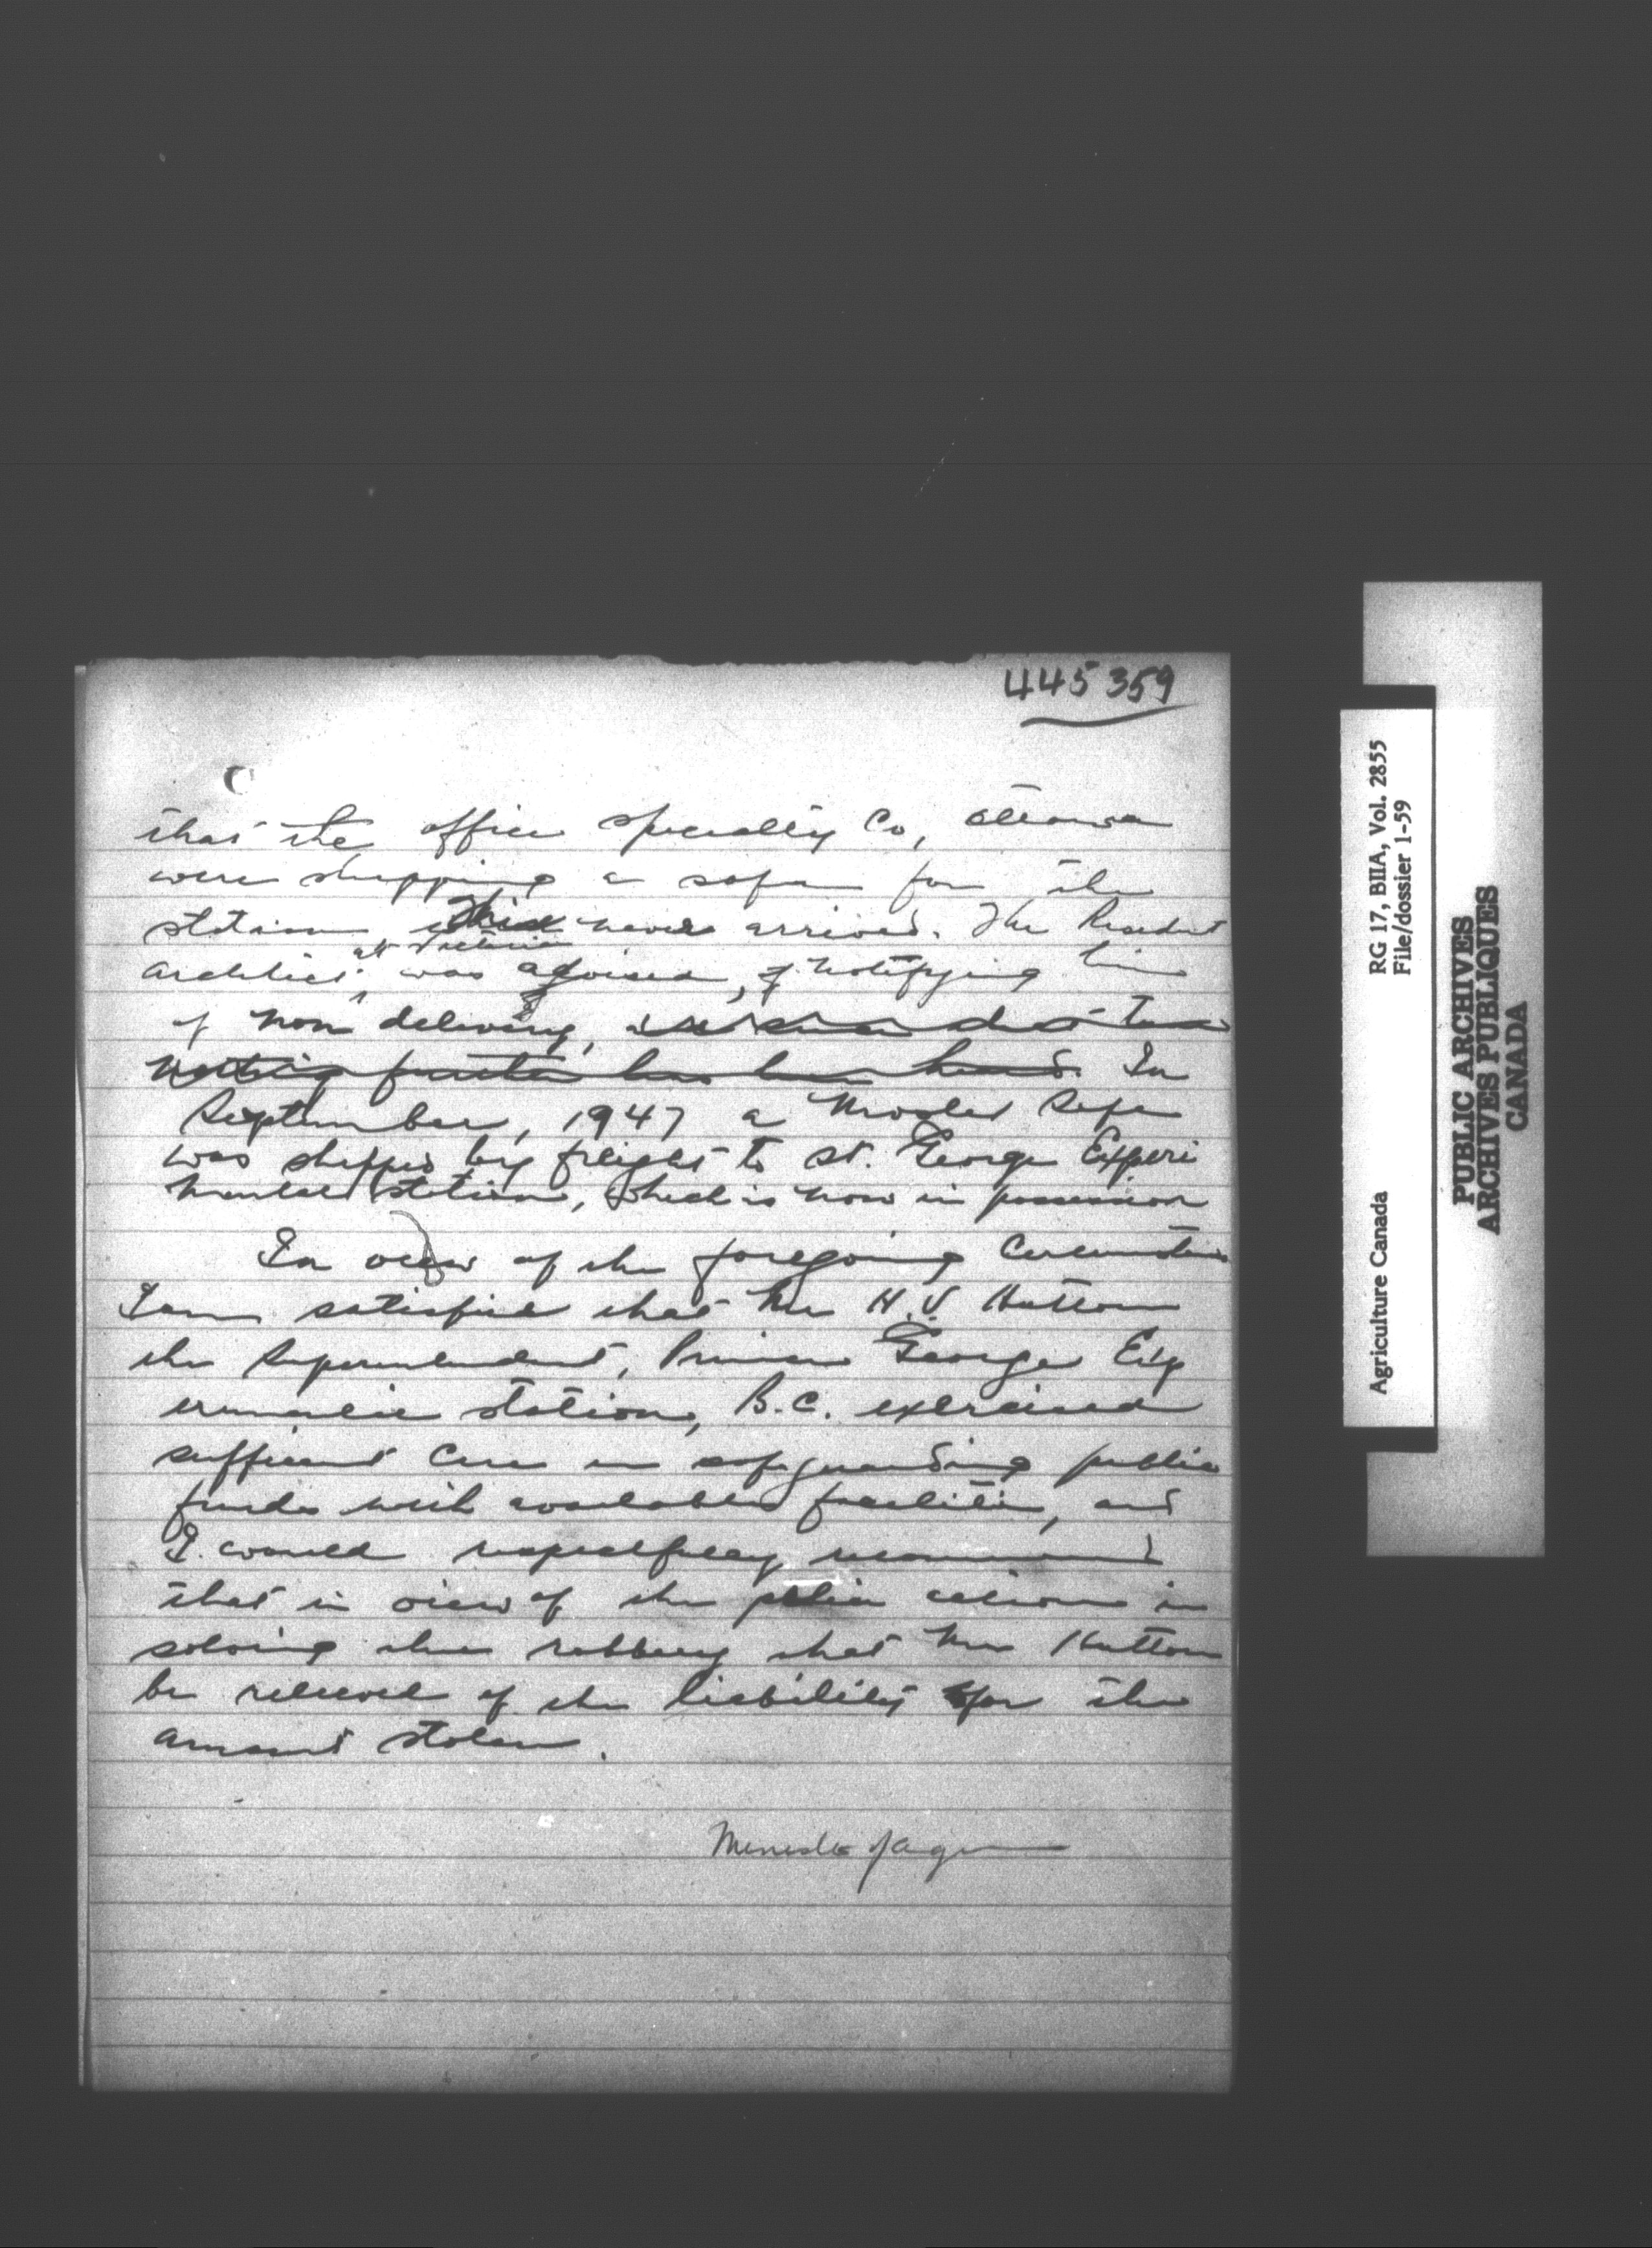 445359
that the office specialty Co, Ottawa
were shipping a safe for the
station This never arrived. The Resident
at Victoria
Architect was advised, notifying him
of non delivery,
nothing further has been heard. In
September, 1947 a Mosler Safe
was shipped by freight to St. George Experi
mental station, which is now in possession
In view of the foregoing circumstances
I am satisfied that Mr H.V Hutton
the Superintendent, Prince George Exp
erimental station, B.C. exercised
sufficient care in safeguarding public
funds with available facilities, and
I would respectfully recommend
that in view of the police actions in
solving the robbery that Mr Hutton
be relieved of the liability for the
amount stolen.
Minister of Agr
Agriculture Canada
RG 17, BIIA, Vol. 2855
File/dossier 1-59
PUBLIC ARCHIVES
ARCHIVES PUBLIQUES
CANADA